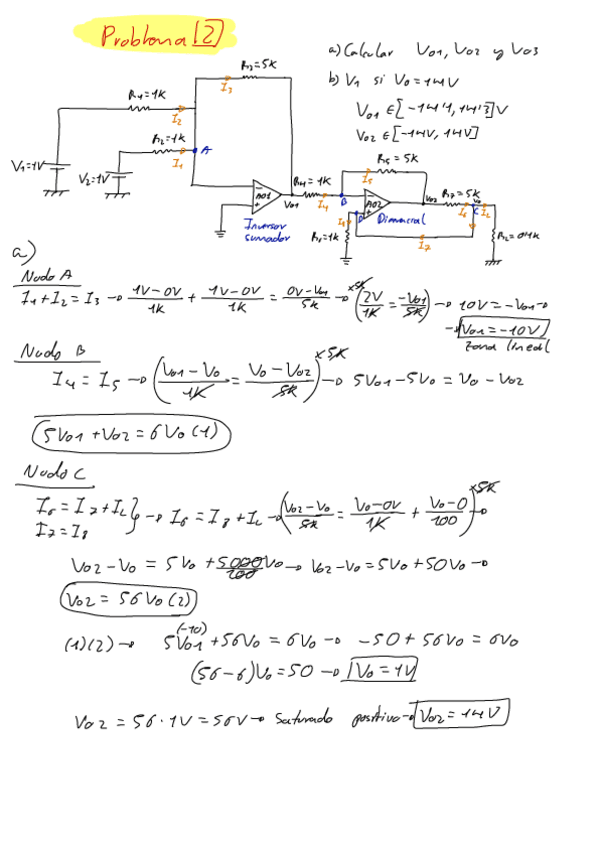 Problema [2]
a) Calcular Vo1, Vo2 y Vo3
b) V1 si Vo=14V
Vo1 ∈ [-14'4, 14'3]V
Vo2 ∈ [-14V, 14V]
R3=5K
I3
R4=1K
I2
R2=1K
I1
A
V1=1V
V2=1V
AO1
Vo1
Inversor
sumador
R4=1K
I4
B
R5=5K
I5
AO2
Vo2
Diferencial
R7=5K
I6
Vo
C
IL
I8
I7
R8=1K
RL=0'1K
a)
Nudo A
I1+I2=I3 → 1V-0V/1K + 1V-0V/1K = 0V-Vo1/5K → (2V/1K = -Vo1/5K) x5K → 10V=-Vo1 →
→ Vo1=-10V
zona lineal
Nudo B
I4=I5 → (Vo1-Vo/1K = Vo-Vo2/5K) x5K → 5Vo1-5Vo=Vo-Vo2
5Vo1+Vo2=6Vo (1)
Nudo C
I6=I7+IL
I7=I8 } → I6=I8+IL → (Vo2-Vo/5K = Vo-0V/1K + Vo-0/100) x5K →
Vo2-Vo = 5Vo + 5000/100 Vo → Vo2-Vo=5Vo+50Vo →
Vo2=56Vo (2)
(1)(2) → 5Vo1 (-10) +56Vo=6Vo → -50+56Vo=6Vo
(56-6)Vo=50 → Vo=1V
Vo2=56·1V=56V → Saturado positivo → Vo2=14V